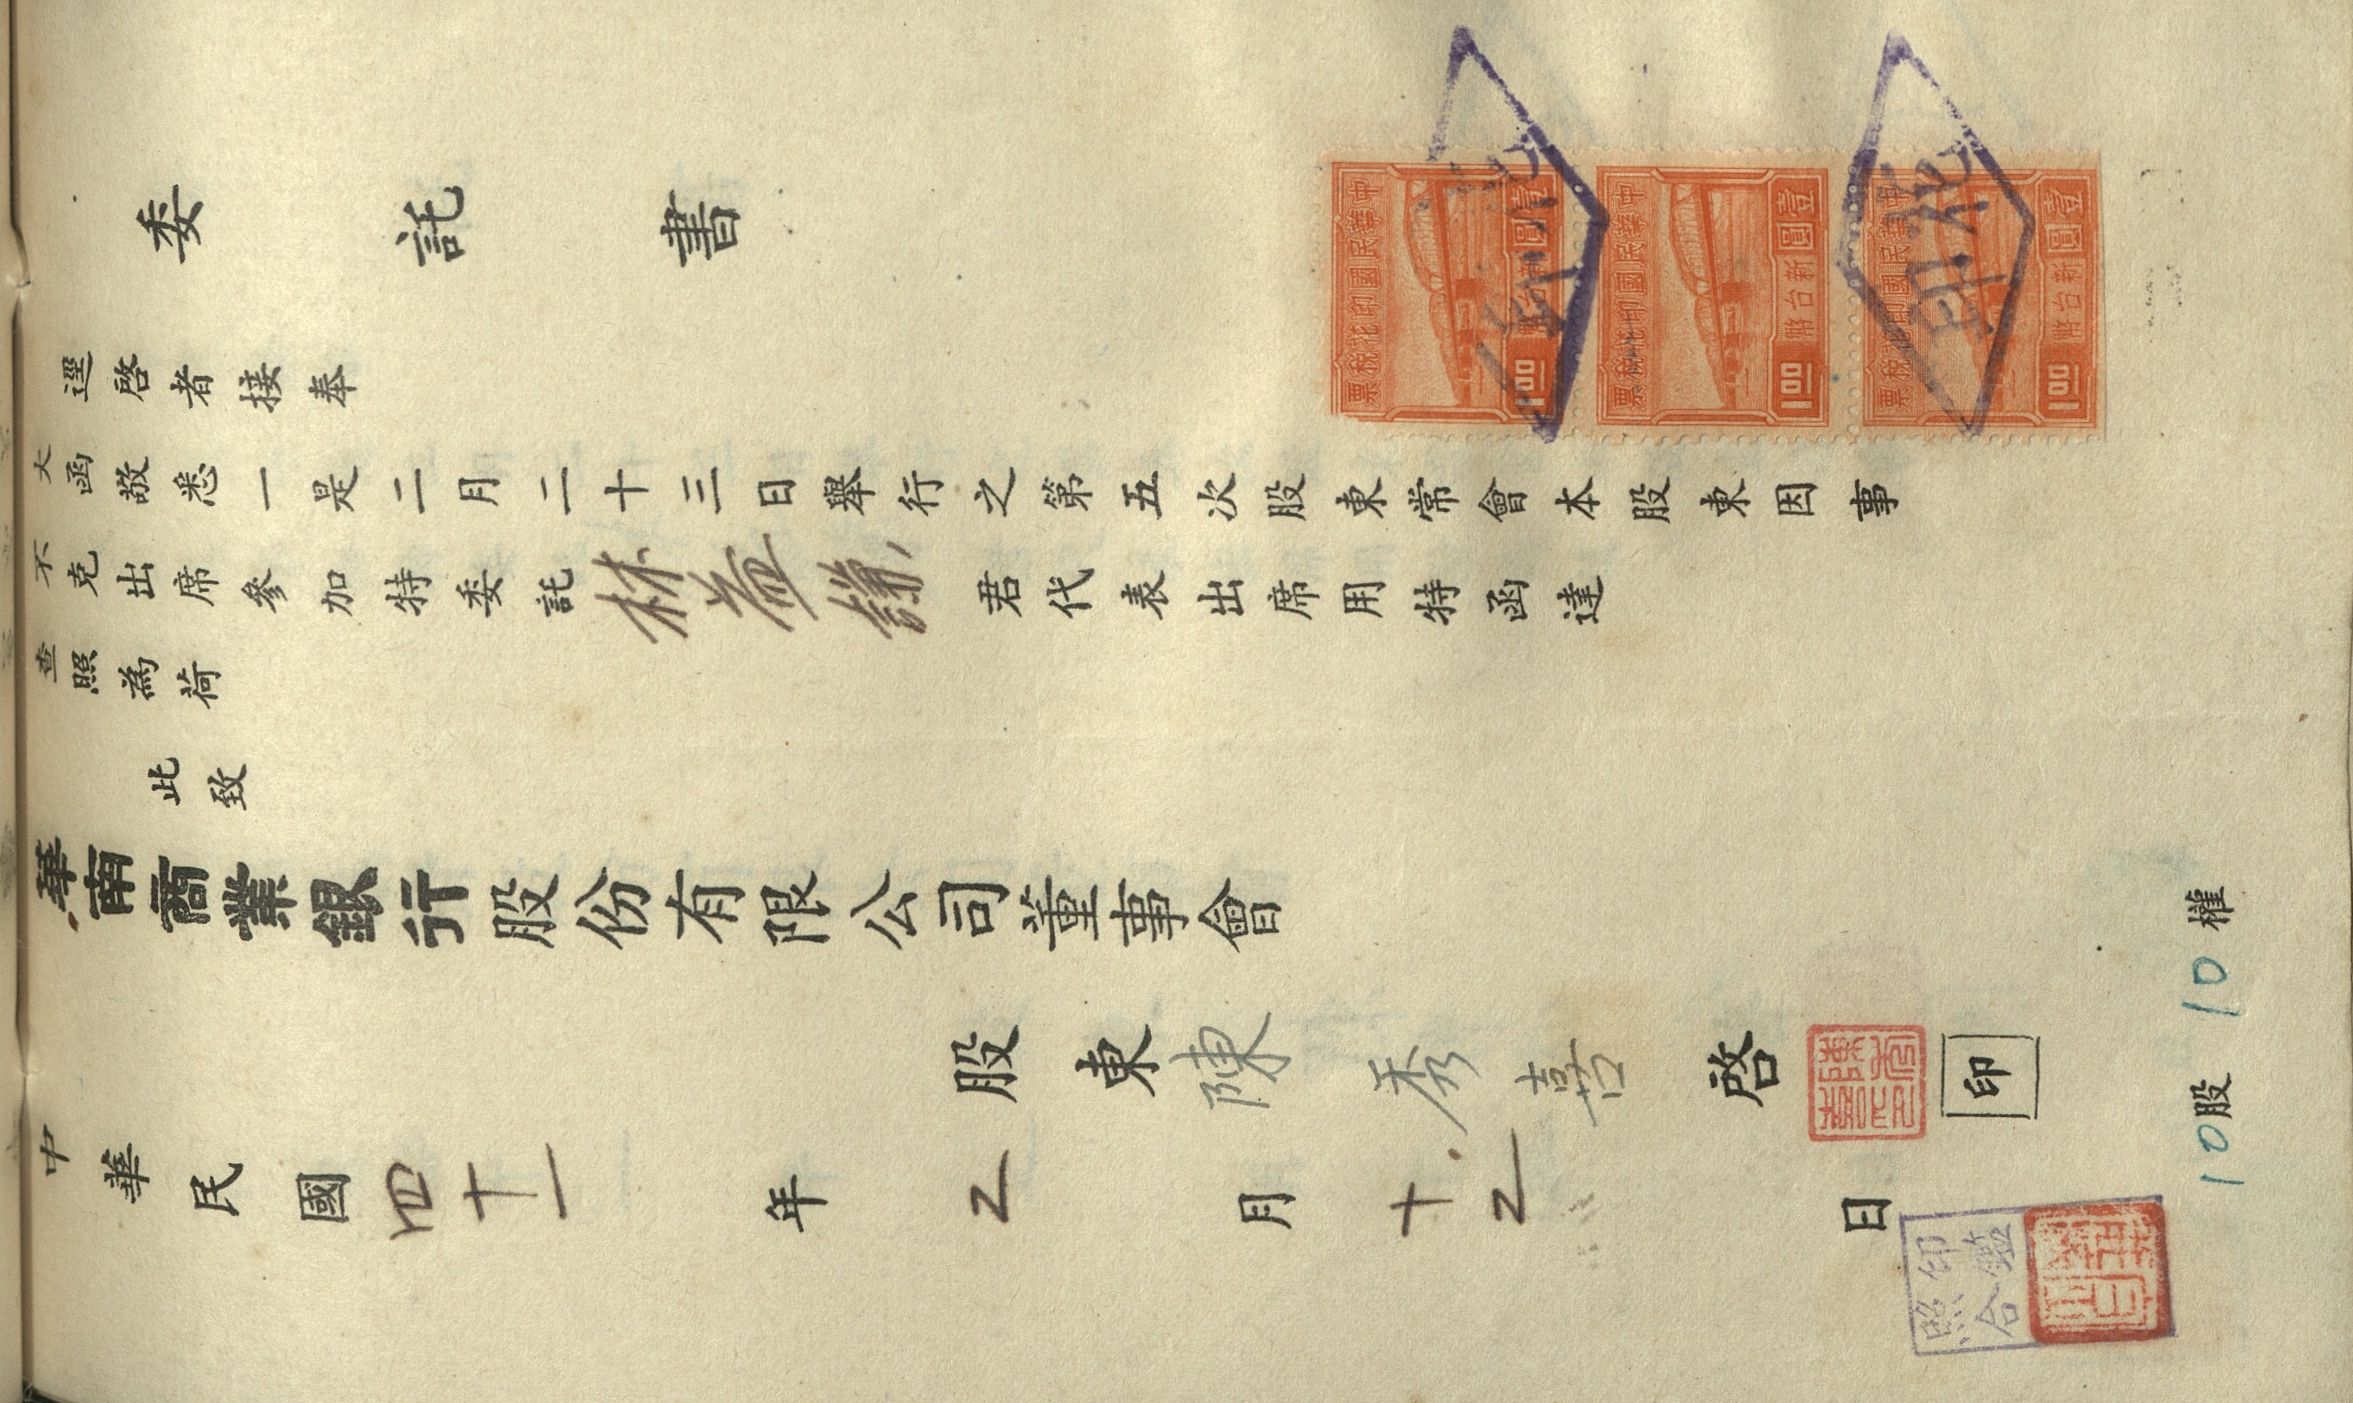 委託書
逕啓者接奉
大函敬悉一是二月二十三日舉行之第五次股東常會本股東因事
不克出席參加特委託林益謙君代表出席用特函達
查照為荷
此致
華南商業銀行股份有限公司董事會
股東陳秀喜啓
印
中華民國四十一年2月十2日
10股10權
印鑑
照合
中華民國印花稅票
壹圓
新台幣
1.00
中華民國印花稅票
壹圓
新台幣
1.00
中華民國印花稅票
壹圓
新台幣
1.00